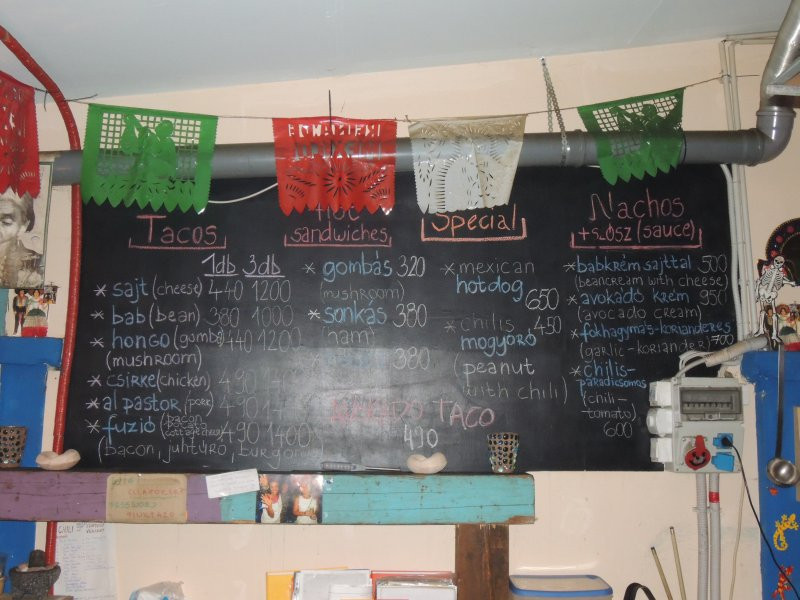 Tacos
1db 3db
* sajt (cheese) 440 1200
* bab (bean) 380 1000
* hongo (gomba) 440 1200
(mushroom)
* csirke (chicken) 490
* al pastor (pork) 490
* fuzió (bacon cottage cheese) 490 1400
(bacon, juhtúró, burgonya)
sandwiches
* gombás 320
(mushroom)
* sonkás 380
(ham)
380
TACO
490
Special
* mexican
hotdog
650
* chilis 450
mogyoró
(peanut
with chili)
Nachos
+szósz (sauce)
* babkrém sajttal 500
(beancream with cheese)
* avokadó krém 950
(avocado cream)
* fokhagymás-korianderes
(garlic-koriander) 700
* chilis-
paradicsomos
(chili-
tomato)
600